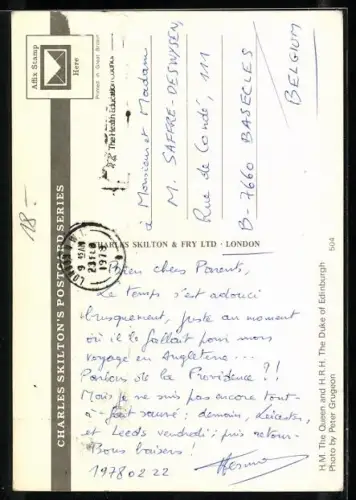 Affix Stamp
Here
Printed in Great Britain
CHARLES SKILTON'S POSTCARD SERIES
18-
The Health Education
LONDON
9 15 AM
23 FEB
1978
à Monsieur et Madame
M. SAFFRE-DESWYSEN,
Rue de Condé, 111
B-7660 BASECLES
BELGIUM
CHARLES SKILTON & FRY LTD · LONDON
504
Bien chers Parents,
Le temps s'est adouci
brusquement, juste au moment
où il le fallait pour mon
voyage en Angleterre...
Parlons de la Providence ?!
Mais je ne suis pas encore tout-
à-fait sauvé: demain, Leicester,
et Leeds vendredi; puis retour.
Bons baisers!
19780222
H.M. The Queen and H.R.H. The Duke of Edinburgh
Photo by Peter Grugeon